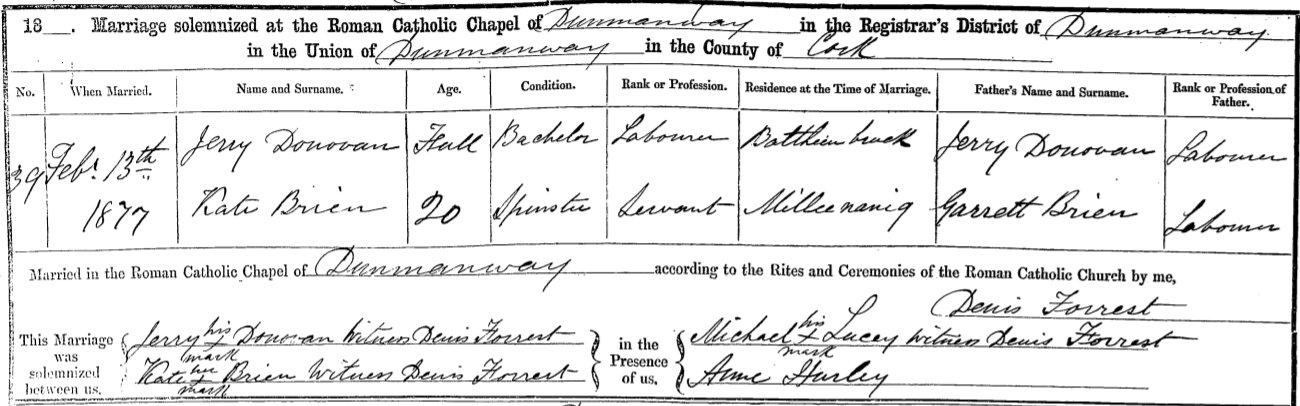 18__. Marriage solemnized at the Roman Catholic Chapel of Dunmanway in the Registrar's District of Dunmanway
in the Union of Dunmanway in the County of Cork
No. When Married. Name and Surname. Age. Condition. Rank or Profession. Residence at the Time of Marriage. Father's Name and Surname. Rank or Profession of Father.
39 Feby. 13th Jerry Donovan Full Bachelor Labourer Jerry Donovan Labourer
1877 Kate Brien 20 Spinster Servant Milleenanig Garrett Brien Labourer
Married in the Roman Catholic Chapel of Dunmanway according to the Rites and Ceremonies of the Roman Catholic Church by me,
Denis Forrest
This Marriage was solemnized between us,
Jerry his X mark Donovan Witness Denis Forrest
Kate her X mark Brien Witness Denis Forrest
in the Presence of us.
Michael his X mark Lucey Witness Denis Forrest
Anne Hurley